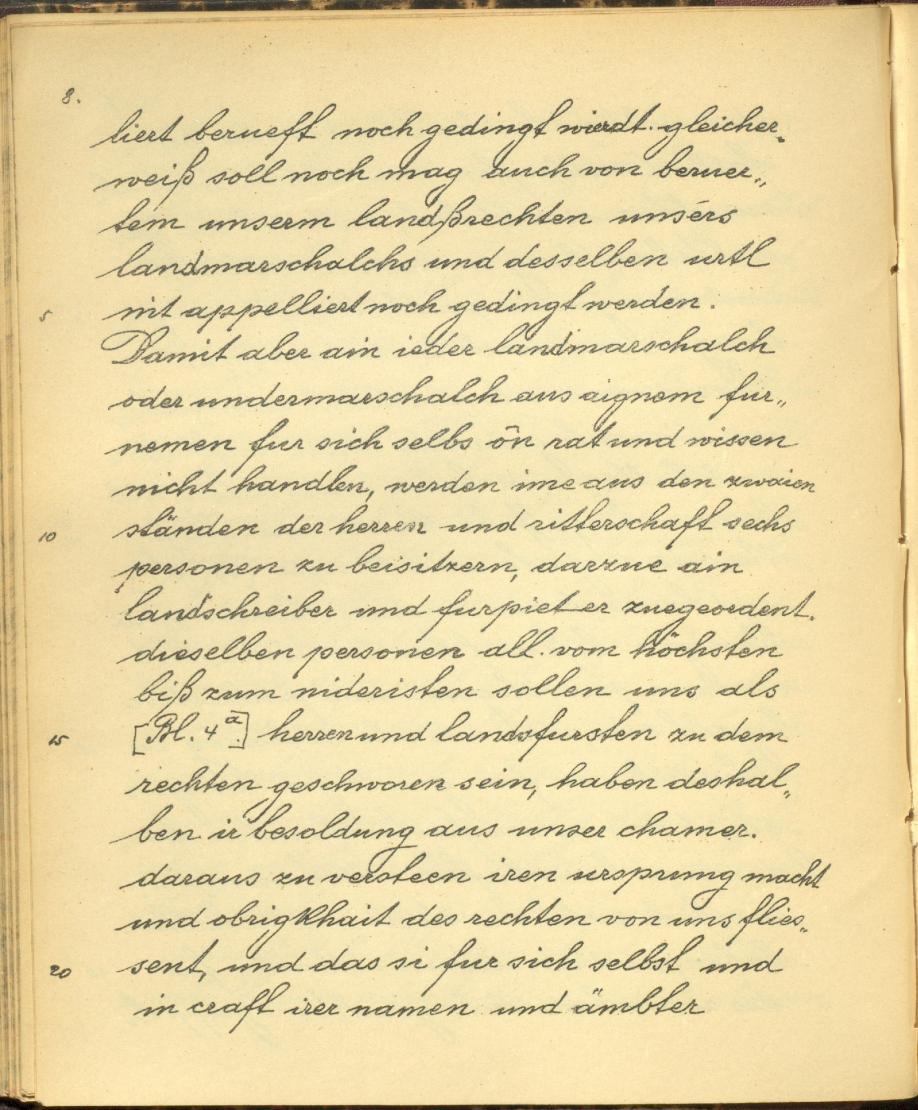 8.
liert berueft noch gedingt wierdt. gleicher„
weiß soll noch mag auch von beruer„
tem unserm landßrechten unsers
landmarschalchs und desselben urtl
5 nit appelliert noch gedingt werden.
Damit aber ain ieder landmarschalch
oder undermarschalch aus aignem fur„
nemen fur sich selbs ōn rat und wissen
nicht handlen, werden ime aus den zwaien
10 ständen der herren und ritterschaft sechs
personen zu beisitzern, darzue ain
landschreiber und furpieter zuegeordent.
dieselben personen all. vom höchsten
biß zum nideristen sollen uns als
15 [Bl. 4a] herren und landsfursten zu dem
rechten geschworen sein, haben deshal„
ben ir besoldung aus unser chamer.
daraus zu versteen iren ursprung macht
und obrigkhait des rechten von uns flies„
20 sent, und das si fur sich selbst und
in craft irer namen und ämbter